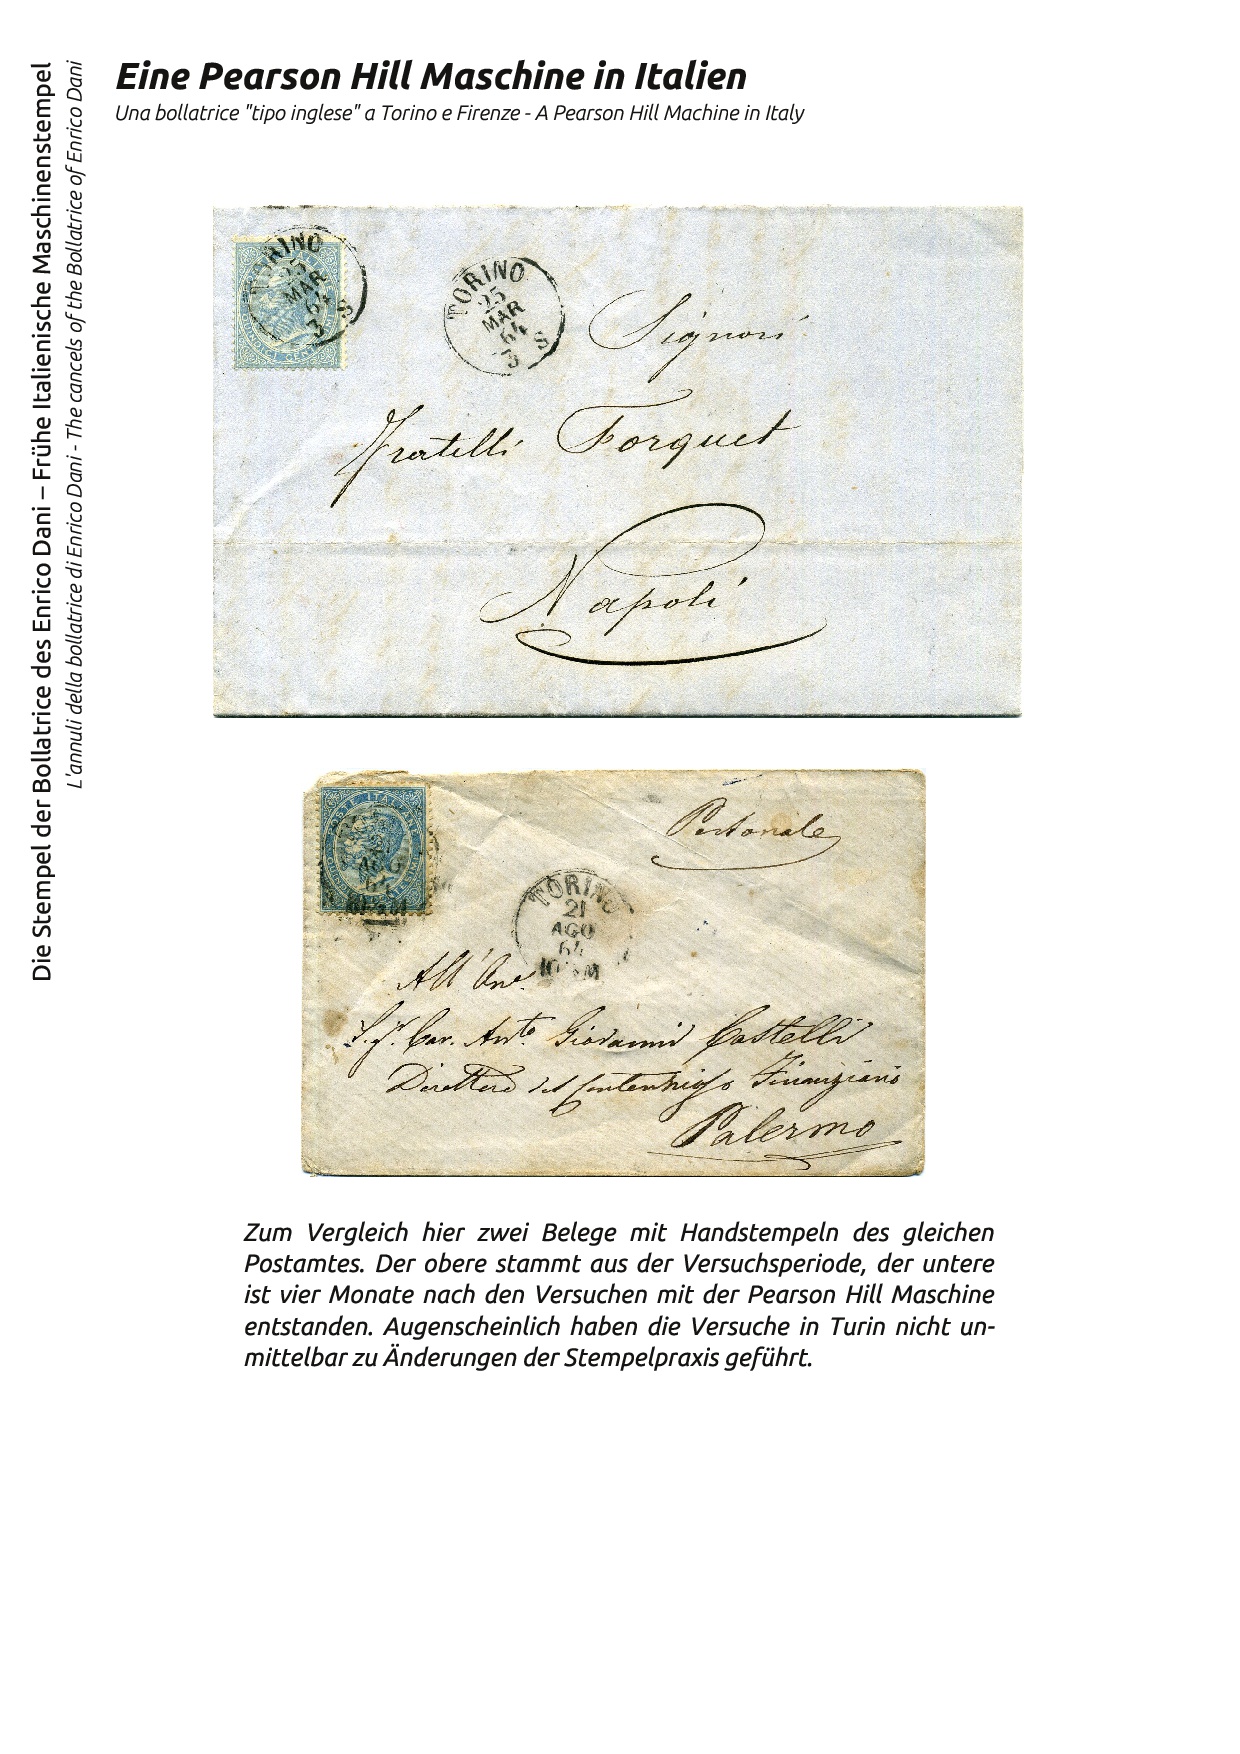 Eine Pearson Hill Maschine in Italien
Una bollatrice "tipo inglese" a Torino e Firenze - A Pearson Hill Machine in Italy
Die Stempel der Bollatrice des Enrico Dani – Frühe Italienische Maschinenstempel
L'annuli della bollatrice di Enrico Dani - The cancels of the Bollatrice of Enrico Dani
TORINO
25
MAR
64
3 S
TORINO
25
MAR
64
3 S
Signori
Fratelli Forquet
Napoli
POSTE ITALIANE
AGO
64
Personale
TORINO
21
AGO
64
10 M
All'
Cav. Giovanni Castelli
Direttore del Finanziario
Palermo
Zum Vergleich hier zwei Belege mit Handstempeln des gleichen
Postamtes. Der obere stammt aus der Versuchsperiode, der untere
ist vier Monate nach den Versuchen mit der Pearson Hill Maschine
entstanden. Augenscheinlich haben die Versuche in Turin nicht un-
mittelbar zu Änderungen der Stempelpraxis geführt.